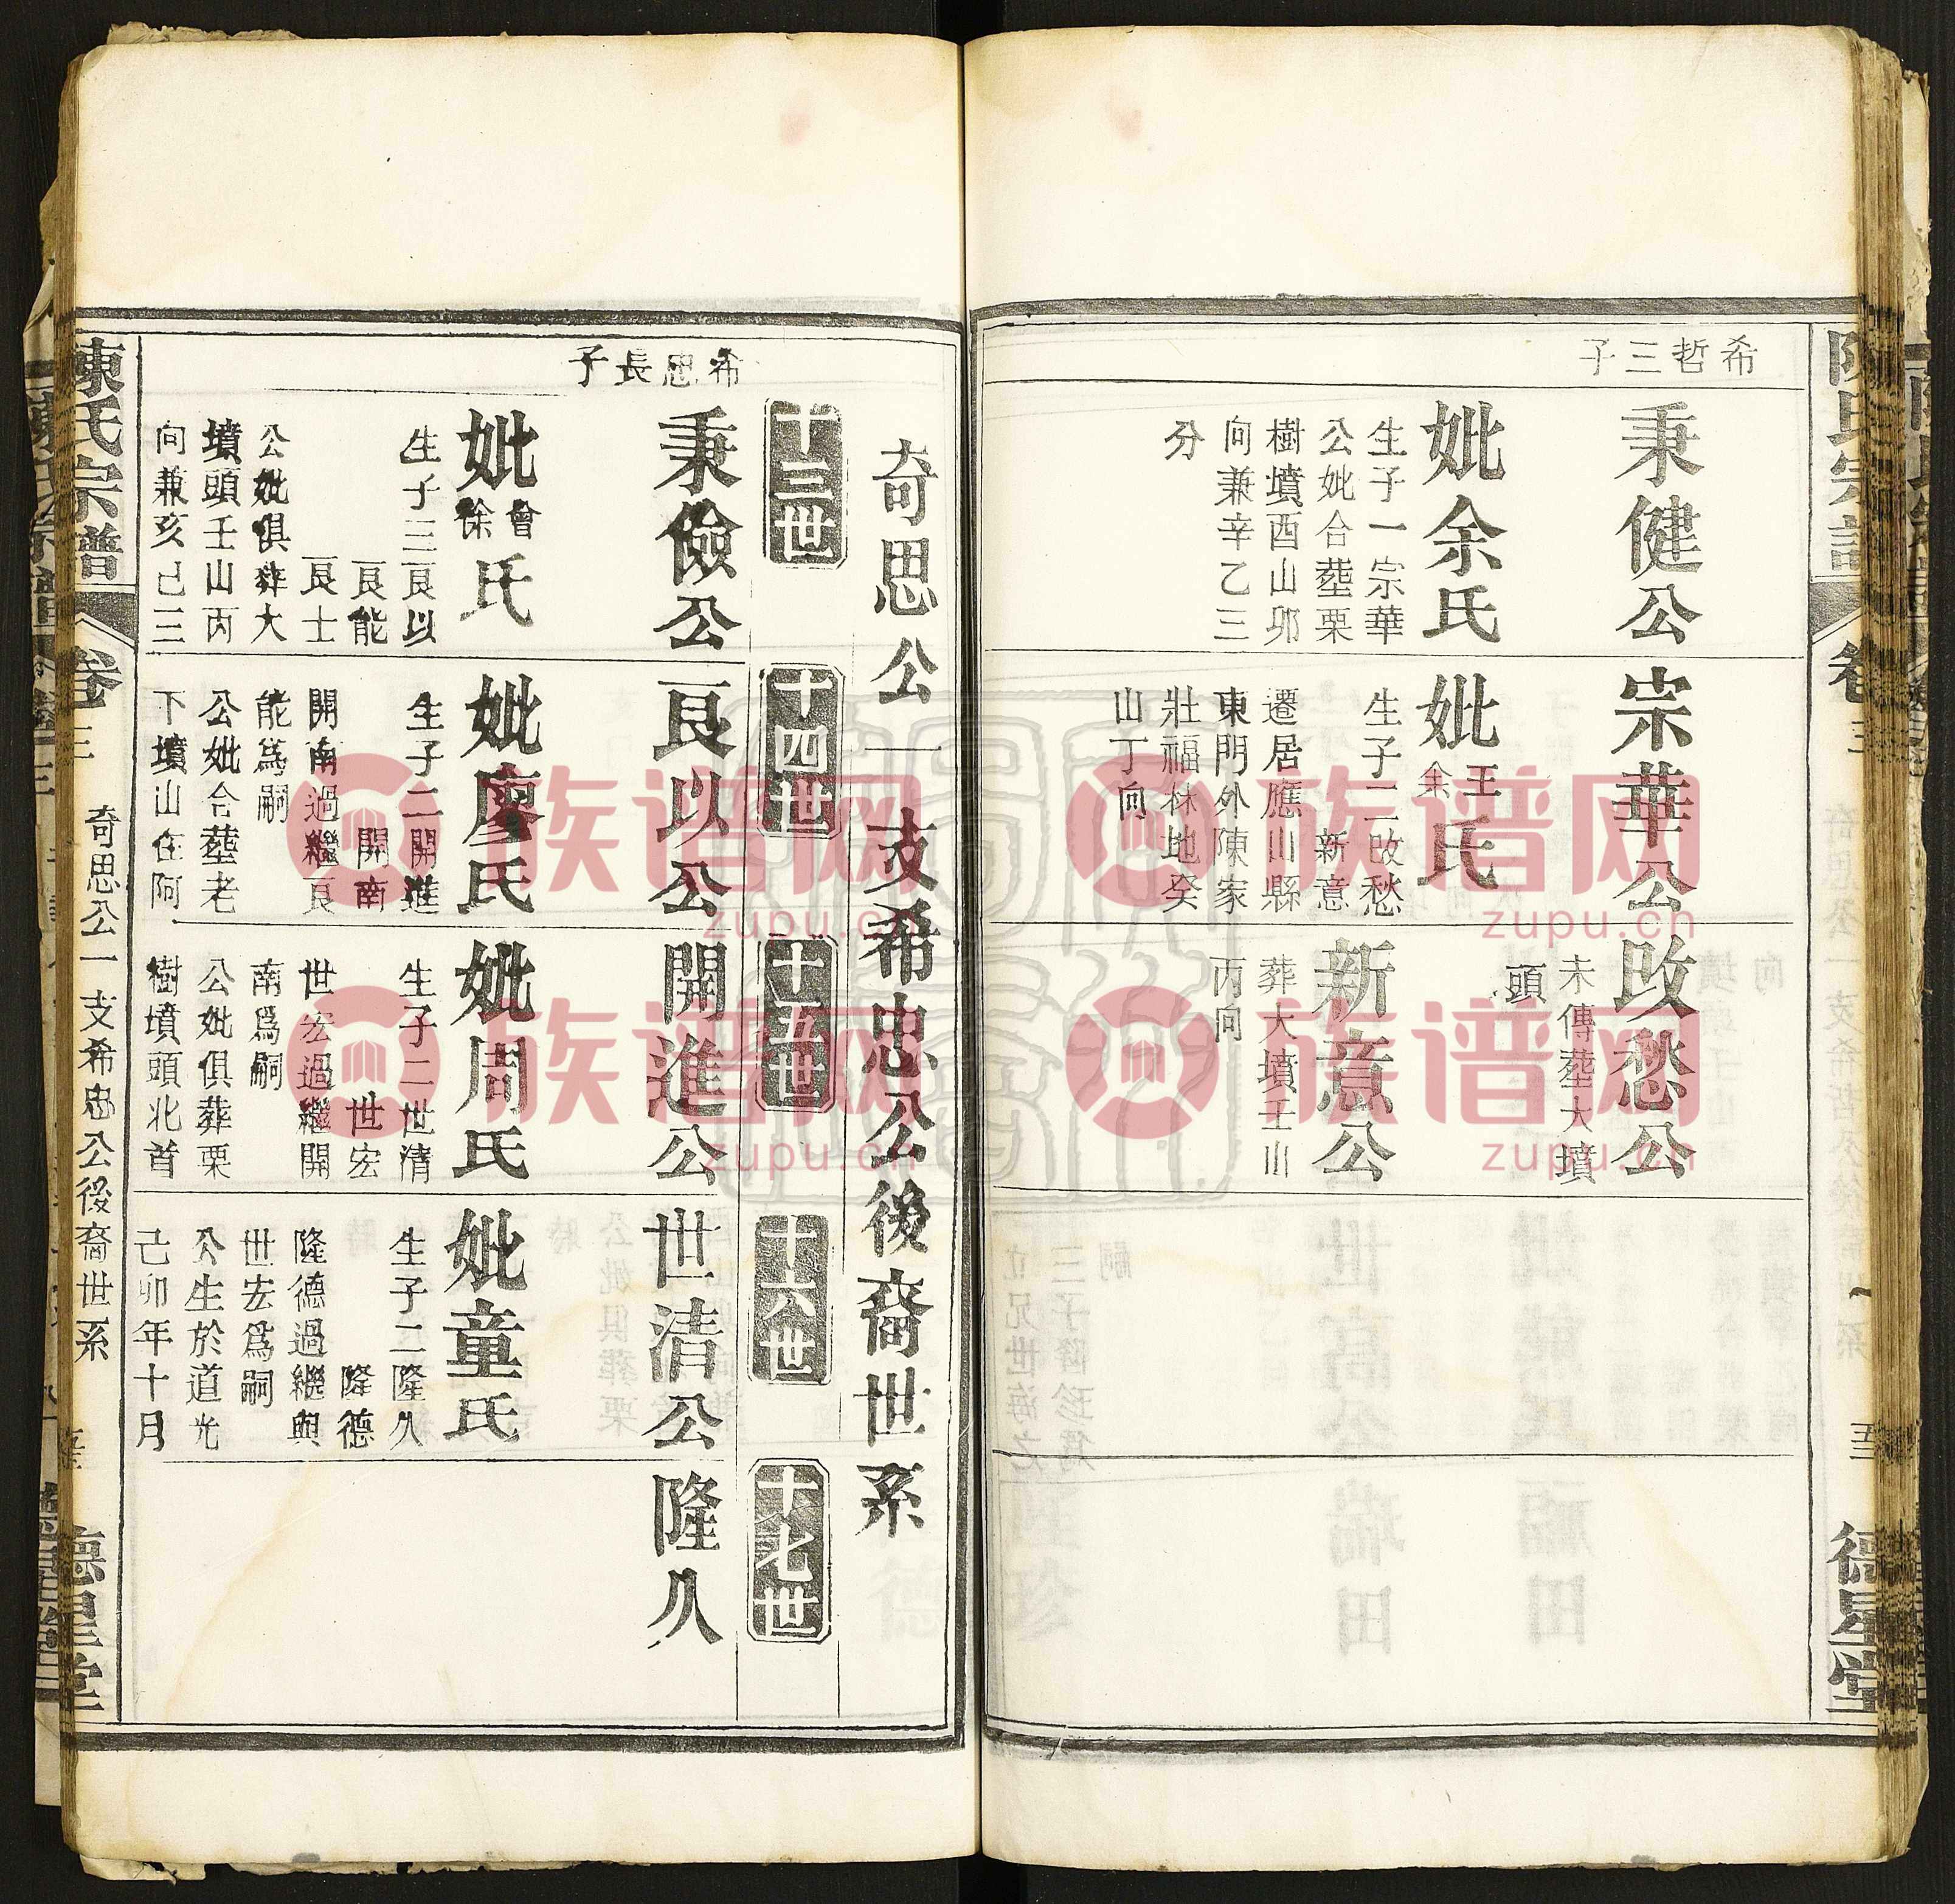 希哲三子
秉健公
妣余氏
生子一宗華
公妣合塟栗
樹墳酉山卯
向兼辛乙三
分
宗華公
妣王余氏
生子二攺愁
新意
遷居應山縣
東門外陳家
壯福林地癸
山丁向
攺愁公
未傳塟大墳
頭
新意公
葬大墳壬山
丙向
德星堂
奇思公一支希忠公後裔世系
十三世
十四世
十五世
十六世
十七世
希思長子
秉儉公
妣曾徐氏
生子三艮以
艮能
艮士
公妣俱葬大
墳頭壬山丙
向兼亥巳三
艮以公
妣廖氏
生子二開進
開南
開南過繼艮
能為嗣
公妣合塟老
下墳山在阿
開進公
妣周氏
生子二世清
世宏
世宏過繼開
南為嗣
公妣俱葬栗
樹墳頭北首
世清公
妣童氏
生子二隆久
隆德
隆德過繼與
世宏為嗣
公生於道光
己卯年十月
隆久
陳氏宗譜
卷三
奇思公一支希忠公後裔世系
德星堂
族谱网
zupu.cn
族谱网
zupu.cn
族谱网
zupu.cn
族谱网
zupu.cn